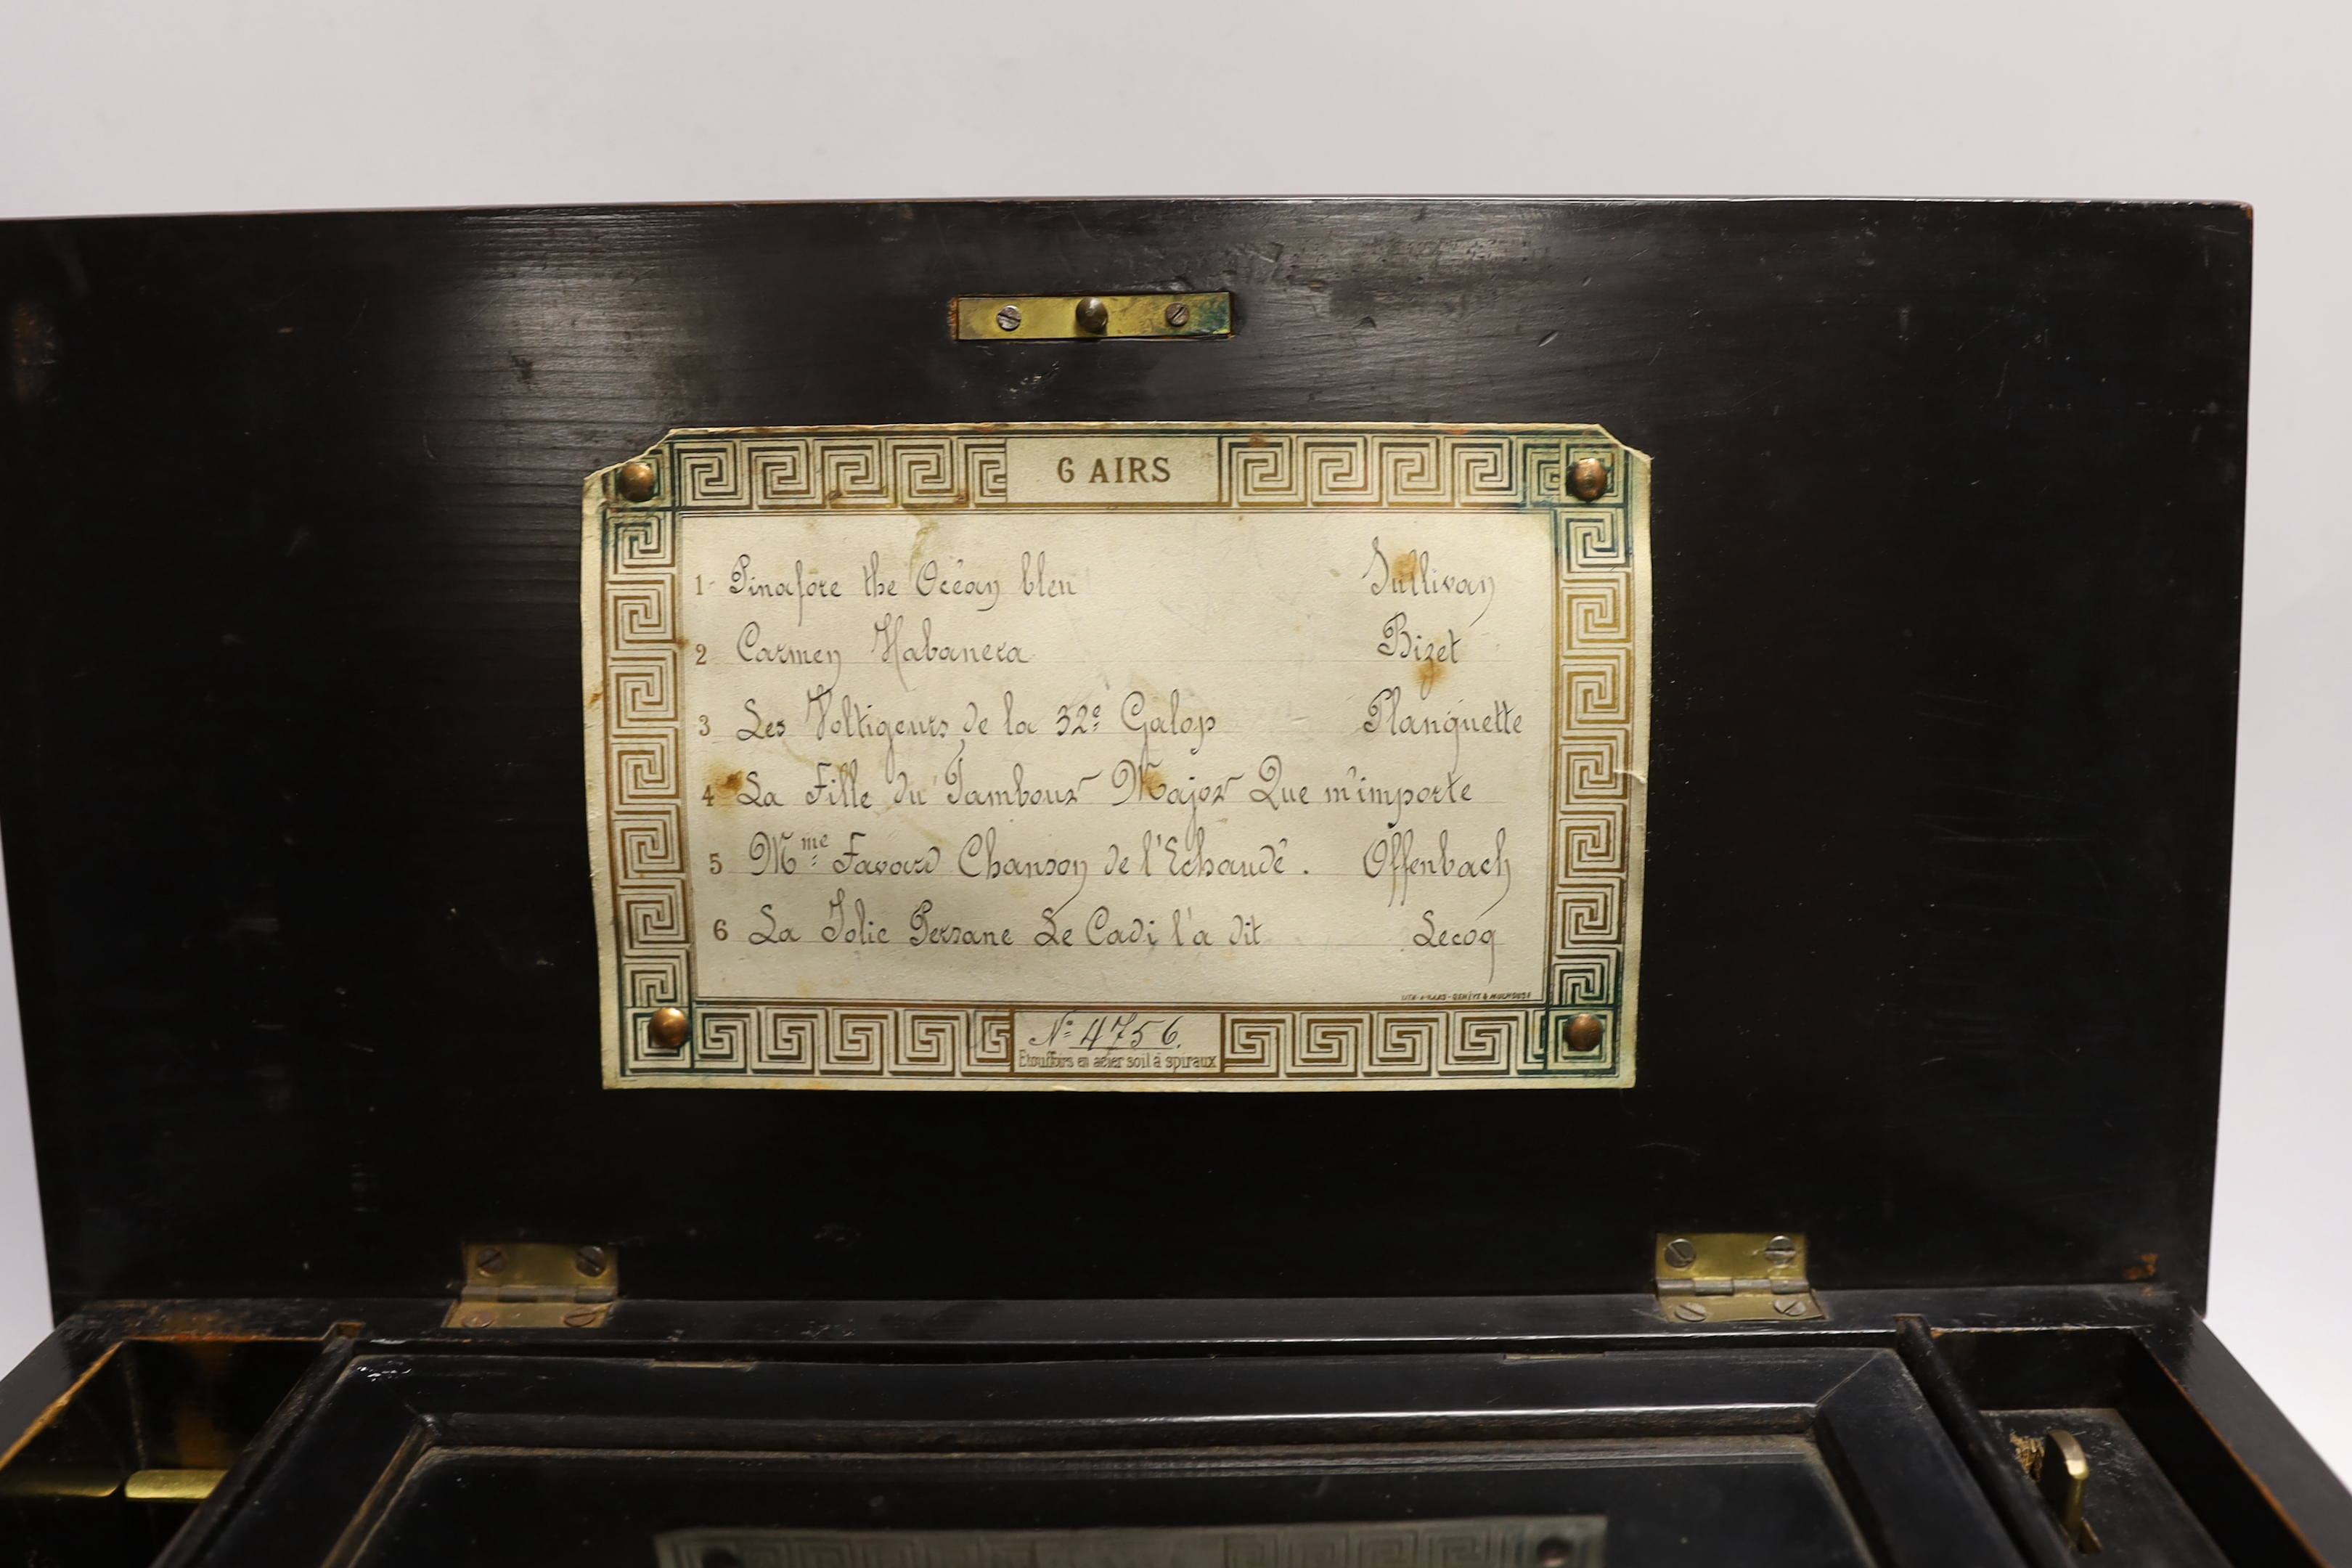 6 AIRS
1 Pinafore the Océan bleu Sullivan
2 Carmen Habanera Bizet
3 Les Voltigeurs de la 32e Galop Planquette
4 La Fille du Tambour Major Que m'importe
5 Mme Favard Chanson de l'Echaudé. Offenbach
6 La Jolie Persane Le Cadi l'a dit Lecoq
GENÈVE & MULHOUSE
No 4756.
Etouffoirs en acier soil à spiraux